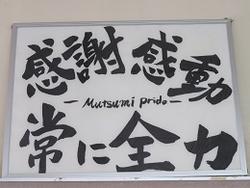 感謝感動
— Mutsumi pride —
常に全力